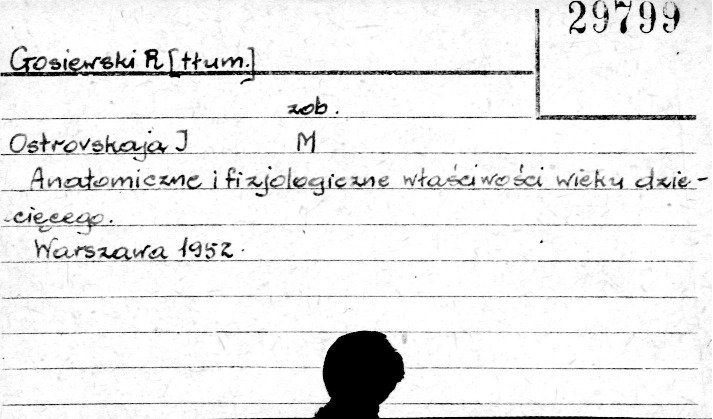 29799
Gosiewski R [tłum.]
zob.
Ostrovskaja J M
Anatomiczne i fizjologiczne właściwości wieku dzie-
cięcego.
Warszawa 1952.